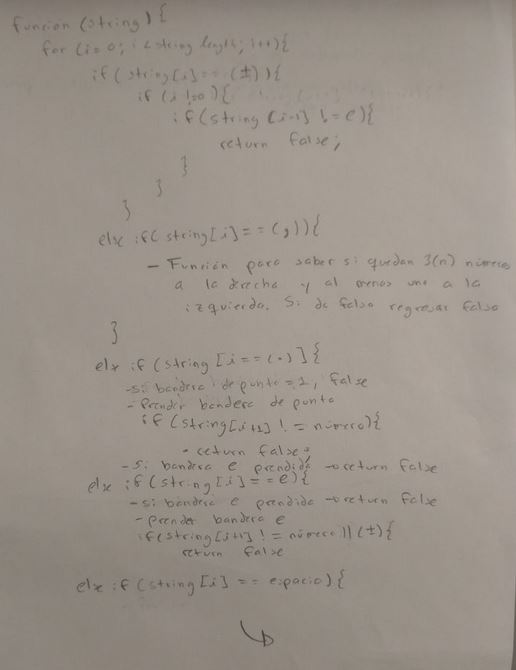 Funcion (string) {
for (i=0; i<string length; i++){
if (string[i]== (±)){
if (i !=0){
if(string [i-1] != e){
return false;
}
}
}
else if(string[i]==(,)){
- Función para saber si quedan 3(n) números
a la derecha y al menos uno a la
izquierda. Si da falso regresar falso
}
else if (string [i==(.)]{
-si bandera de punto = 1, false
- Prender bandera de punto
if (string[i+1] != número){
- return false;
- Si bandera e prendida → return false
else if (string[i]==e){
- si bandera e prendida → return false
- prender bandera e
if(string[i+1] != número || (±){
return false
else if (string[i] == espacio){